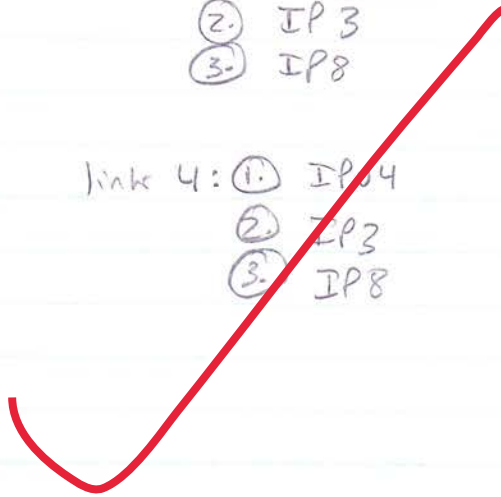 2. IP3
3. IP8
link 4: 1. IP04
2. IP3
3. IP8